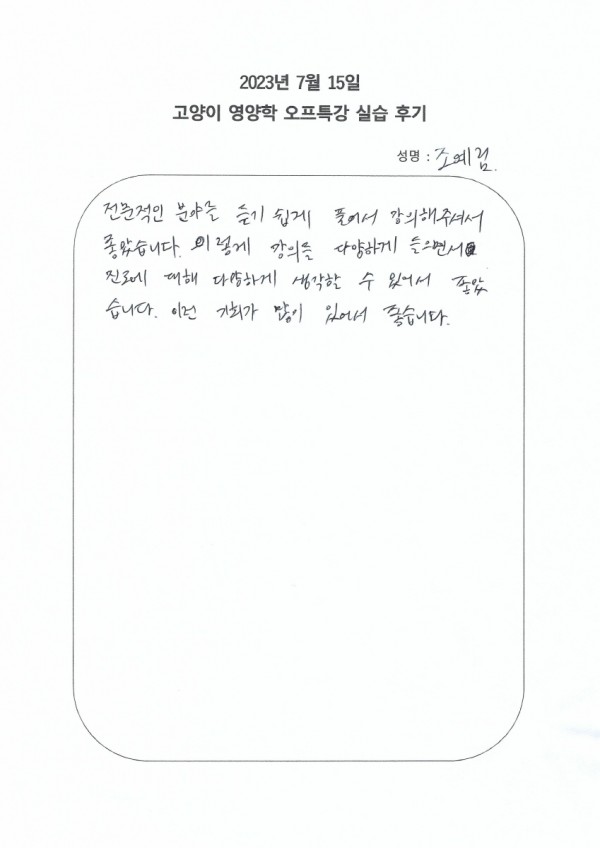 2023년 7월 15일
고양이 영양학 오프특강 실습 후기
성명 : 조예림
전문적인 분야를 듣기 쉽게 풀어서 강의해주셔서
좋았습니다. 이렇게 강의를 다양하게 들으면서
진로에 대해 다양하게 생각할 수 있어서 좋았
습니다. 이런 기회가 많이 있어서 좋습니다.